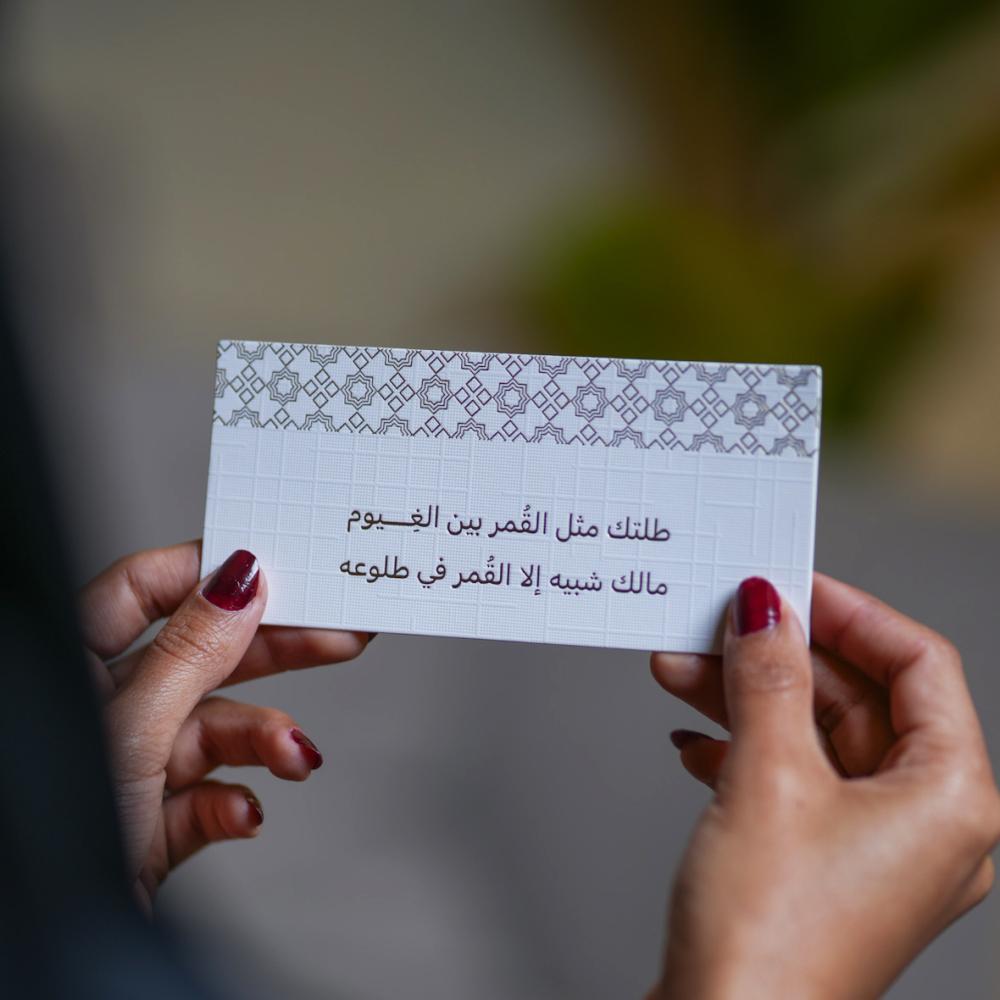 طلتك مثل القُمر بين الغِـــيوم
مالك شبيه إلا القُمر في طلوعه